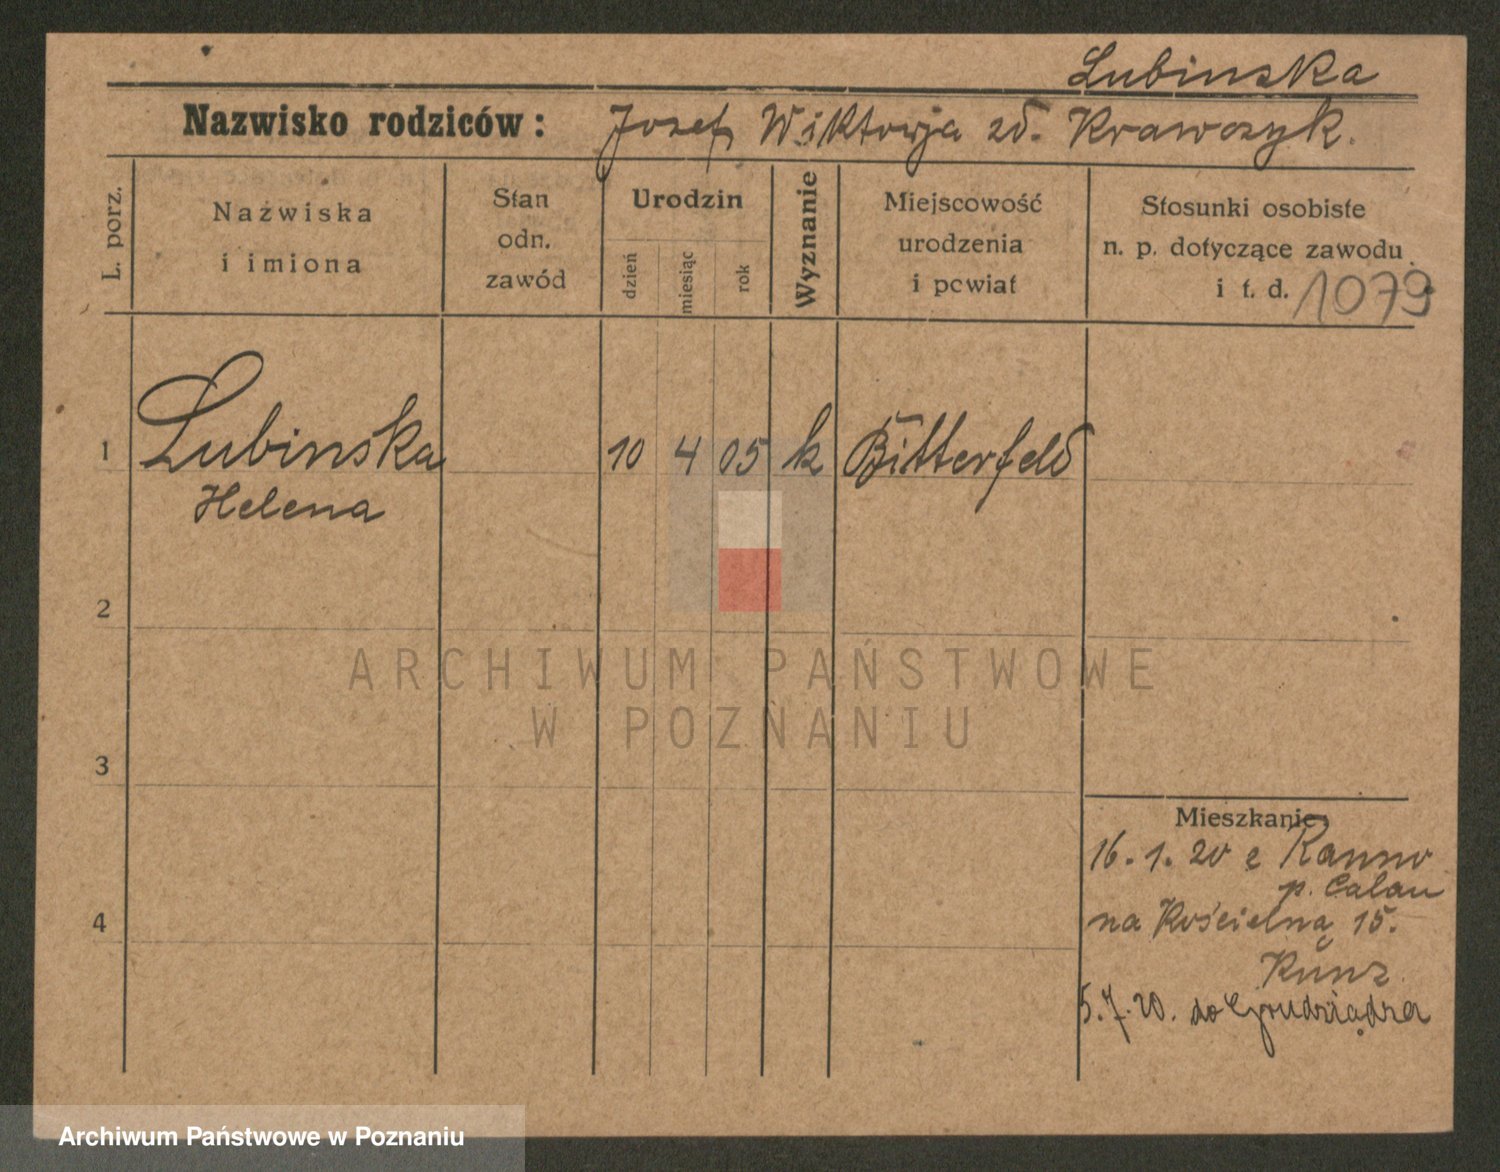 Lubinska
Nazwisko rodziców: Jozef, Wiktorja zd. Krawczyk.
L. porz.
Nazwiska
i imiona
Stan
odn.
zawód
Urodzin
dzień
miesiąc
rok
Wyznanie
Miejscowość
urodzenia
i powiat
Stosunki osobiste
n. p. dotyczące zawodu
i t. d. 1079
1 Lubinska 10 4 05 k Bitterfeld
Helena
2
ARCHIWUM PAŃSTWOWE
W POZNANIU
3
Mieszkanie:
16.1.20 z Kanno
p. Calau
4
na Kościelną 15.
Kunz.
5.7.20. do Grudziądza
Archiwum Państwowe w Poznaniu